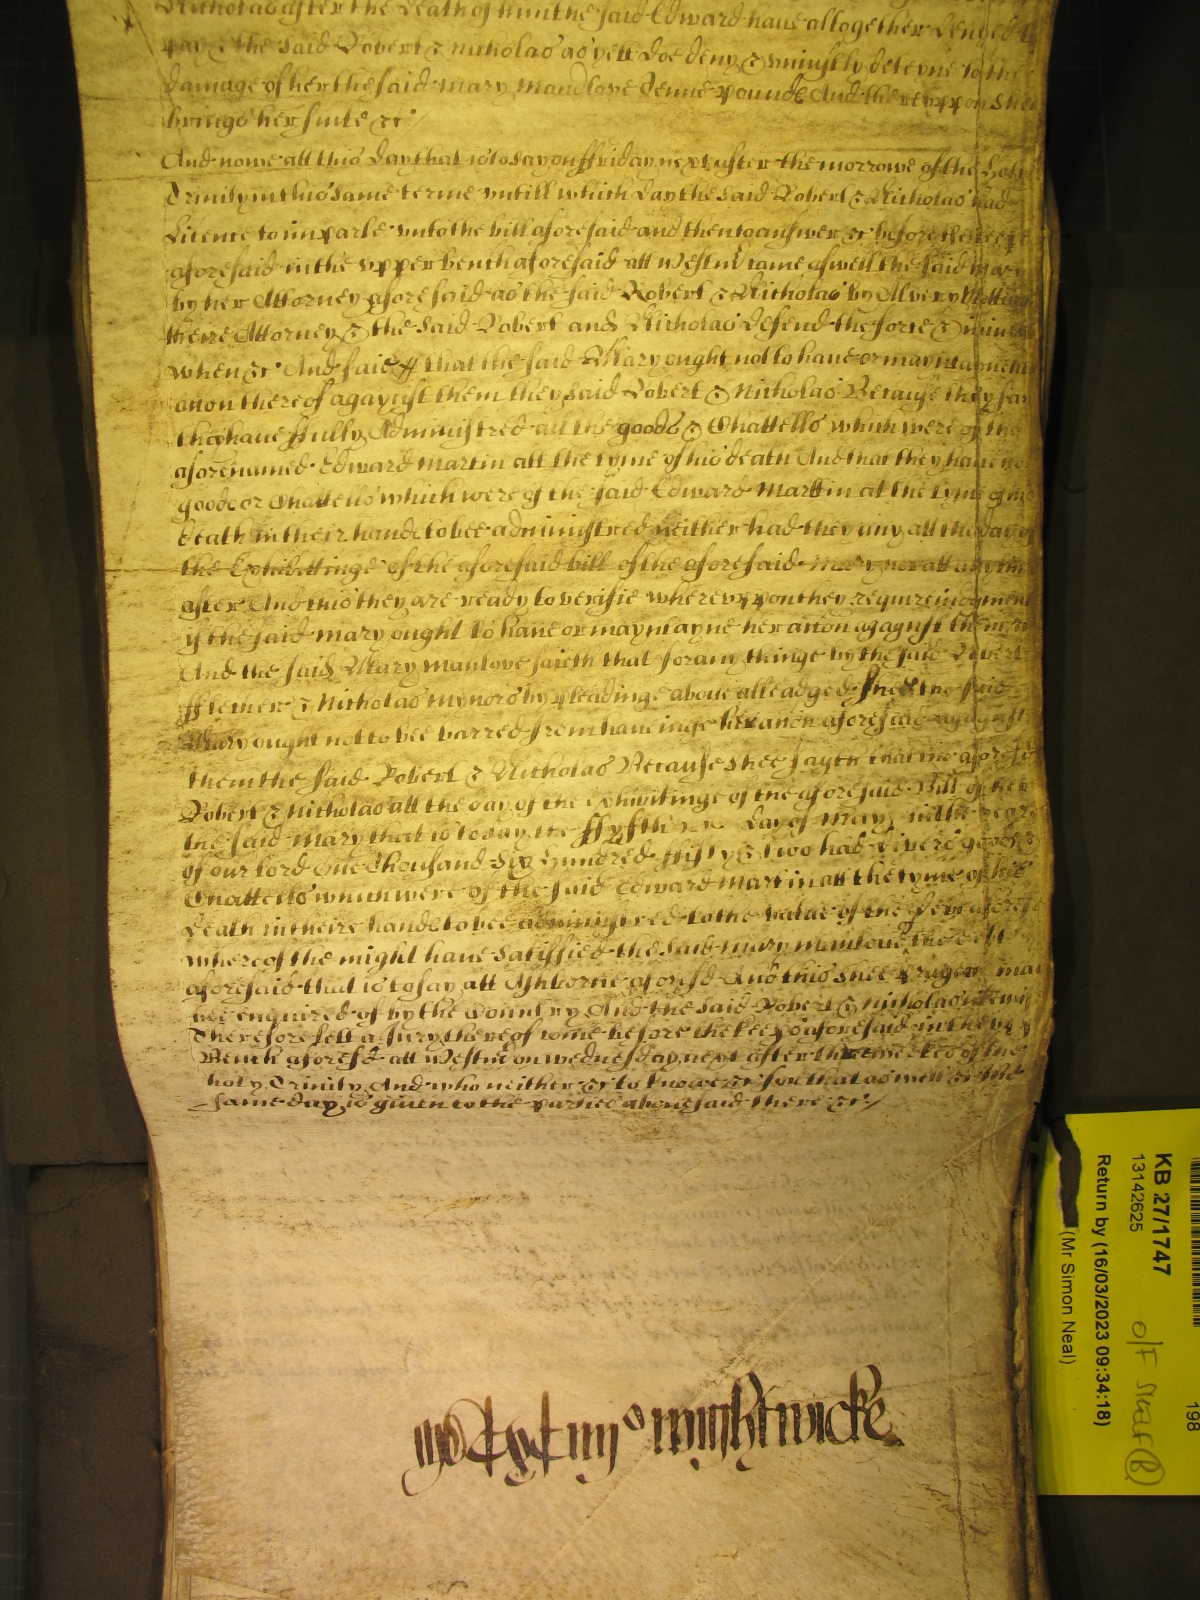 Nicholas after the death of him the said Edward have altogether denyed to
pay & the said Robert & Nicholas as yett doe deny & uniustly deteyne to the
damage of her the said Mary Manlove Tenne pound And thereuppon shee
brings her suite &c
And nowe att this day that is to say on ffriday next after the morrowe of the holy
Trinity in this same terme untill which day the said Robert & Nicholas had
Licence to imparle unto the bill aforesaid and then to answer &c before the keepers
aforesaid in the upper bench aforesaid att Westm came aswell the said Mary
by her Attorney aforesaid as the said Robert & Nicholas by Alvery
theire Attorney & the said Robert and Nicholas defend the force & iniury
when &c And said that the said Mary ought not to have or mayntayne her
accon thereof agaynst them they said Robert & Nicholas Because they say
they have ffully Administred all the goods & Chattells which were of the
aforenamed Edward Martin att the tyme of his death And that they have no
goods or Chattells which were of the said Edward Martin at the tyme of his
death in their hands to bee administred neither had they any att the day of
the Exhibittinge of the aforesaid bill of the aforesaid Mary nor att any tyme
after And this they are ready to verifie whereuppon they require iudgment
if the said Mary ought to have or mayntayne her accon agaynst them &c
And the said Mary Manlove saieth that for any thinge by the said Robert
ffletcher & Nicholas Mynors by pleadinge above alleadged shee the said
Mary ought not to bee barred from haveinge her accon aforesaid agaynst
them the said Robert & Nicholas Because shee sayth that the aforesd
Robert & Nicholas att the day of the exhibitinge of the aforesaid Bill of her
the said Mary that is to say the ffyfth day of May in the yeare
of our lord One Thousand Six Hundred ffifty & Two had divers goods &
Chattells which were of the said Edward Martin att the tyme of his
death in theire hands to bee administred to the value of the debt aforesd
whereof the might have satisfied the said Mary Manlove the debt
aforesaid that is to say att Ashborne aforesd And this shee prayeth may
bee enquired of by the Country And the said Robert & Nicholas likewise
Therefore lett a Jury thereof come before the keepers aforesaid in the upper
Bench aforesd att Westm on wednesday next after three weekes of the
holy Trinity And who neither &c to knowe &c for that as well &c the
same day is given to the parties abovesaid there &c
wightwicke
KB 27/1747
13142625
Return by (16/03/2023 09:34:18)
(Mr Simon Neal)
198